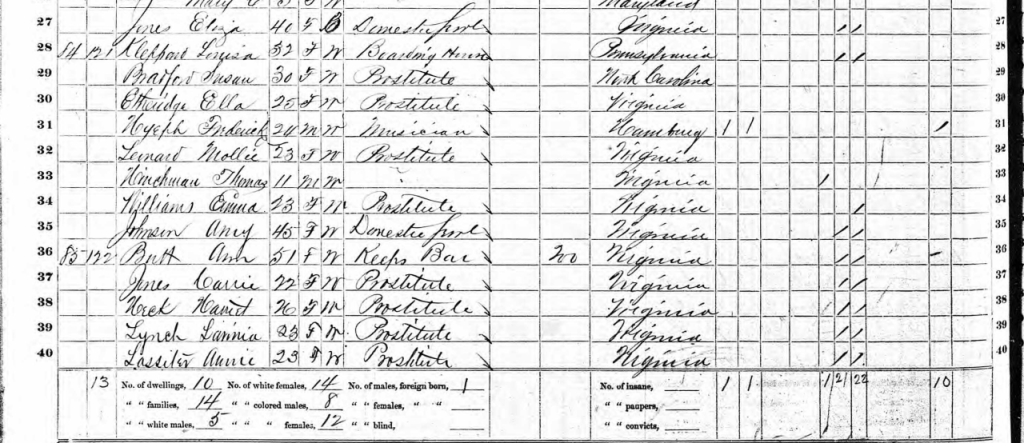 Mary 5 F W Maryland
27 Jones Eliza 40 F B Domestic Serv Virginia 1 1 27
28 84 121 Louisa 32 F W Boarding House Pennsylvania 1 1 28
29 Bradford Susan 30 F W Prostitute North Carolina 29
30 Etheridge Ella 25 F W Prostitute Virginia 30
31 Frederick M W Musician Hamburg 1 1 1 31
32 Leonard Mollie 23 F W Prostitute Virginia 32
33 Hinchman Thomas 11 M W Virginia 1 33
34 Williams Emma 23 F W Prostitute Virginia 34
35 Johnson Amy 45 F W Domestic Serv Virginia 1 1 35
36 85 122 Butt Ann 51 F W Keeps Bar 200 Virginia 1 1 36
37 Jones Carrie 22 F W Prostitute Virginia 1 1 37
38 Heck 26 F W Prostitute Virginia 1 1 38
39 Lynch 23 F W Prostitute Virginia 1 1 39
40 Lassiter Annie 23 F W Prostitute Virginia 1 1 40
13 No. of dwellings, 10 No. of white females, 14 No. of males, foreign born, 1 No. of insane, 1 1 1 21 22 10
" " families, 14 " " colored males, 8 " " females, " " " " paupers,
" " white males, 5 " " " females, 12 " " blind, " " convicts,